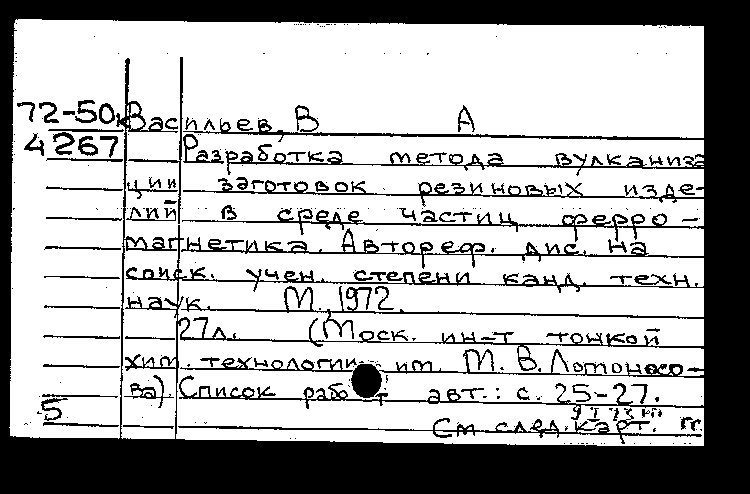 72-50к Васильев, В А
4267 Разработка метода вулканиза
ции заготовок резиновых изде-
лий в среде частиц ферро-
магнетика. Автореф. дис. на
соиск. учен. степени канд. техн.
наук. М., 1972.
27л. (Моск. ин-т тонкой
хим. технологии им. М. В. Ломоносо-
ва). Список работ авт.: с. 25-27.
5
См. след. карт.